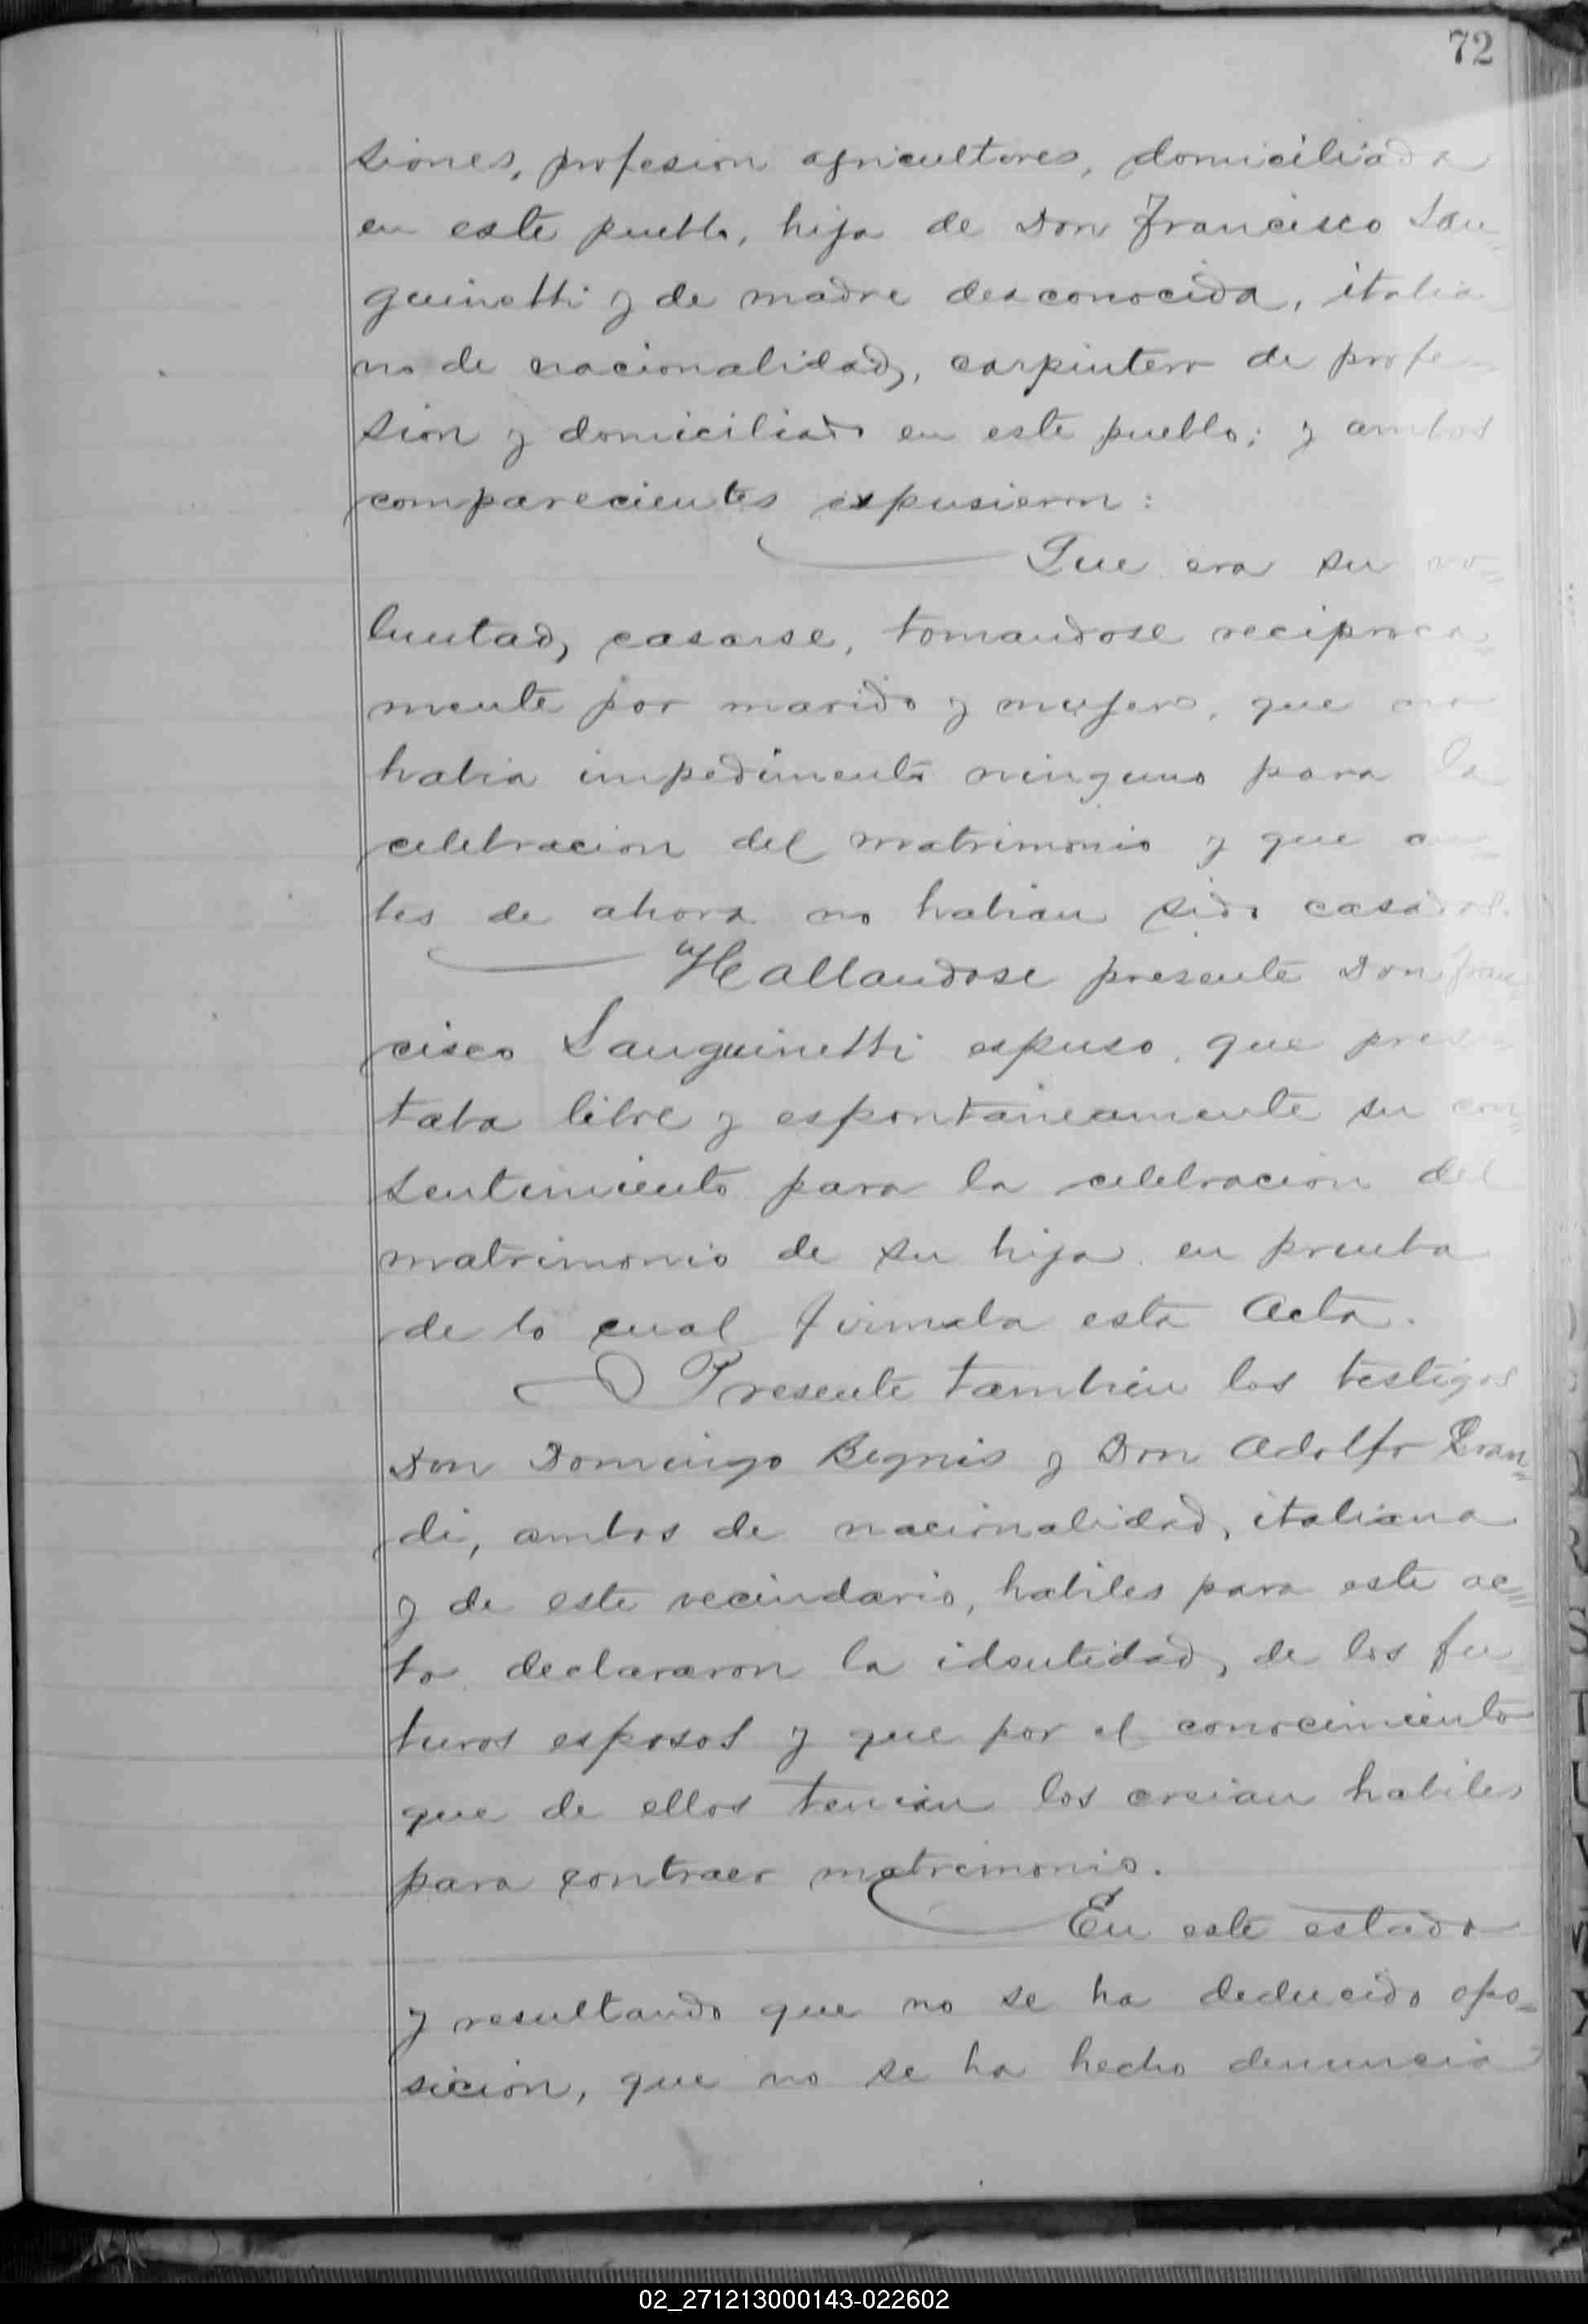 72
siones, profesion agricultores, domiciliada
en este pueblo, hija de Don Francisco San=
guinetti y de madre desconocida, italia
no de nacionalidad, carpintero de profe-
sion y domiciliado en este pueblo; y ambos
comparecientes expusieron:
Que era su vo=
luntad, casarse, tomandose reciproca=
mente por marido y mujer, que no
habia impedimento ninguno para la
celebracion del matrimonio y que an=
tes de ahora no habian sido casados.
Hallandose presente Don Fran
cisco Sanguinetti espuso, que pres
taba libre y espontaneamente su con=
sentimiento para la celebracion del
matrimonio de su hija en prueba
de lo cual firmaba esta Acta.
Presente tambien los testigos
Don Domingo Begnis y Don Adolfo
di, ambos de nacionalidad, italiana
y de este vecindario, habiles para este ac=
to declararon la identidad, de los fu=
turos esposos y que por el conocimiento
que de ellos tenian los creian habiles
para contraer matrimonio.
En este estado
y resultando que no se ha deducido opo=
sicion, que no se ha hecho denuncia
02_271213000143-022602